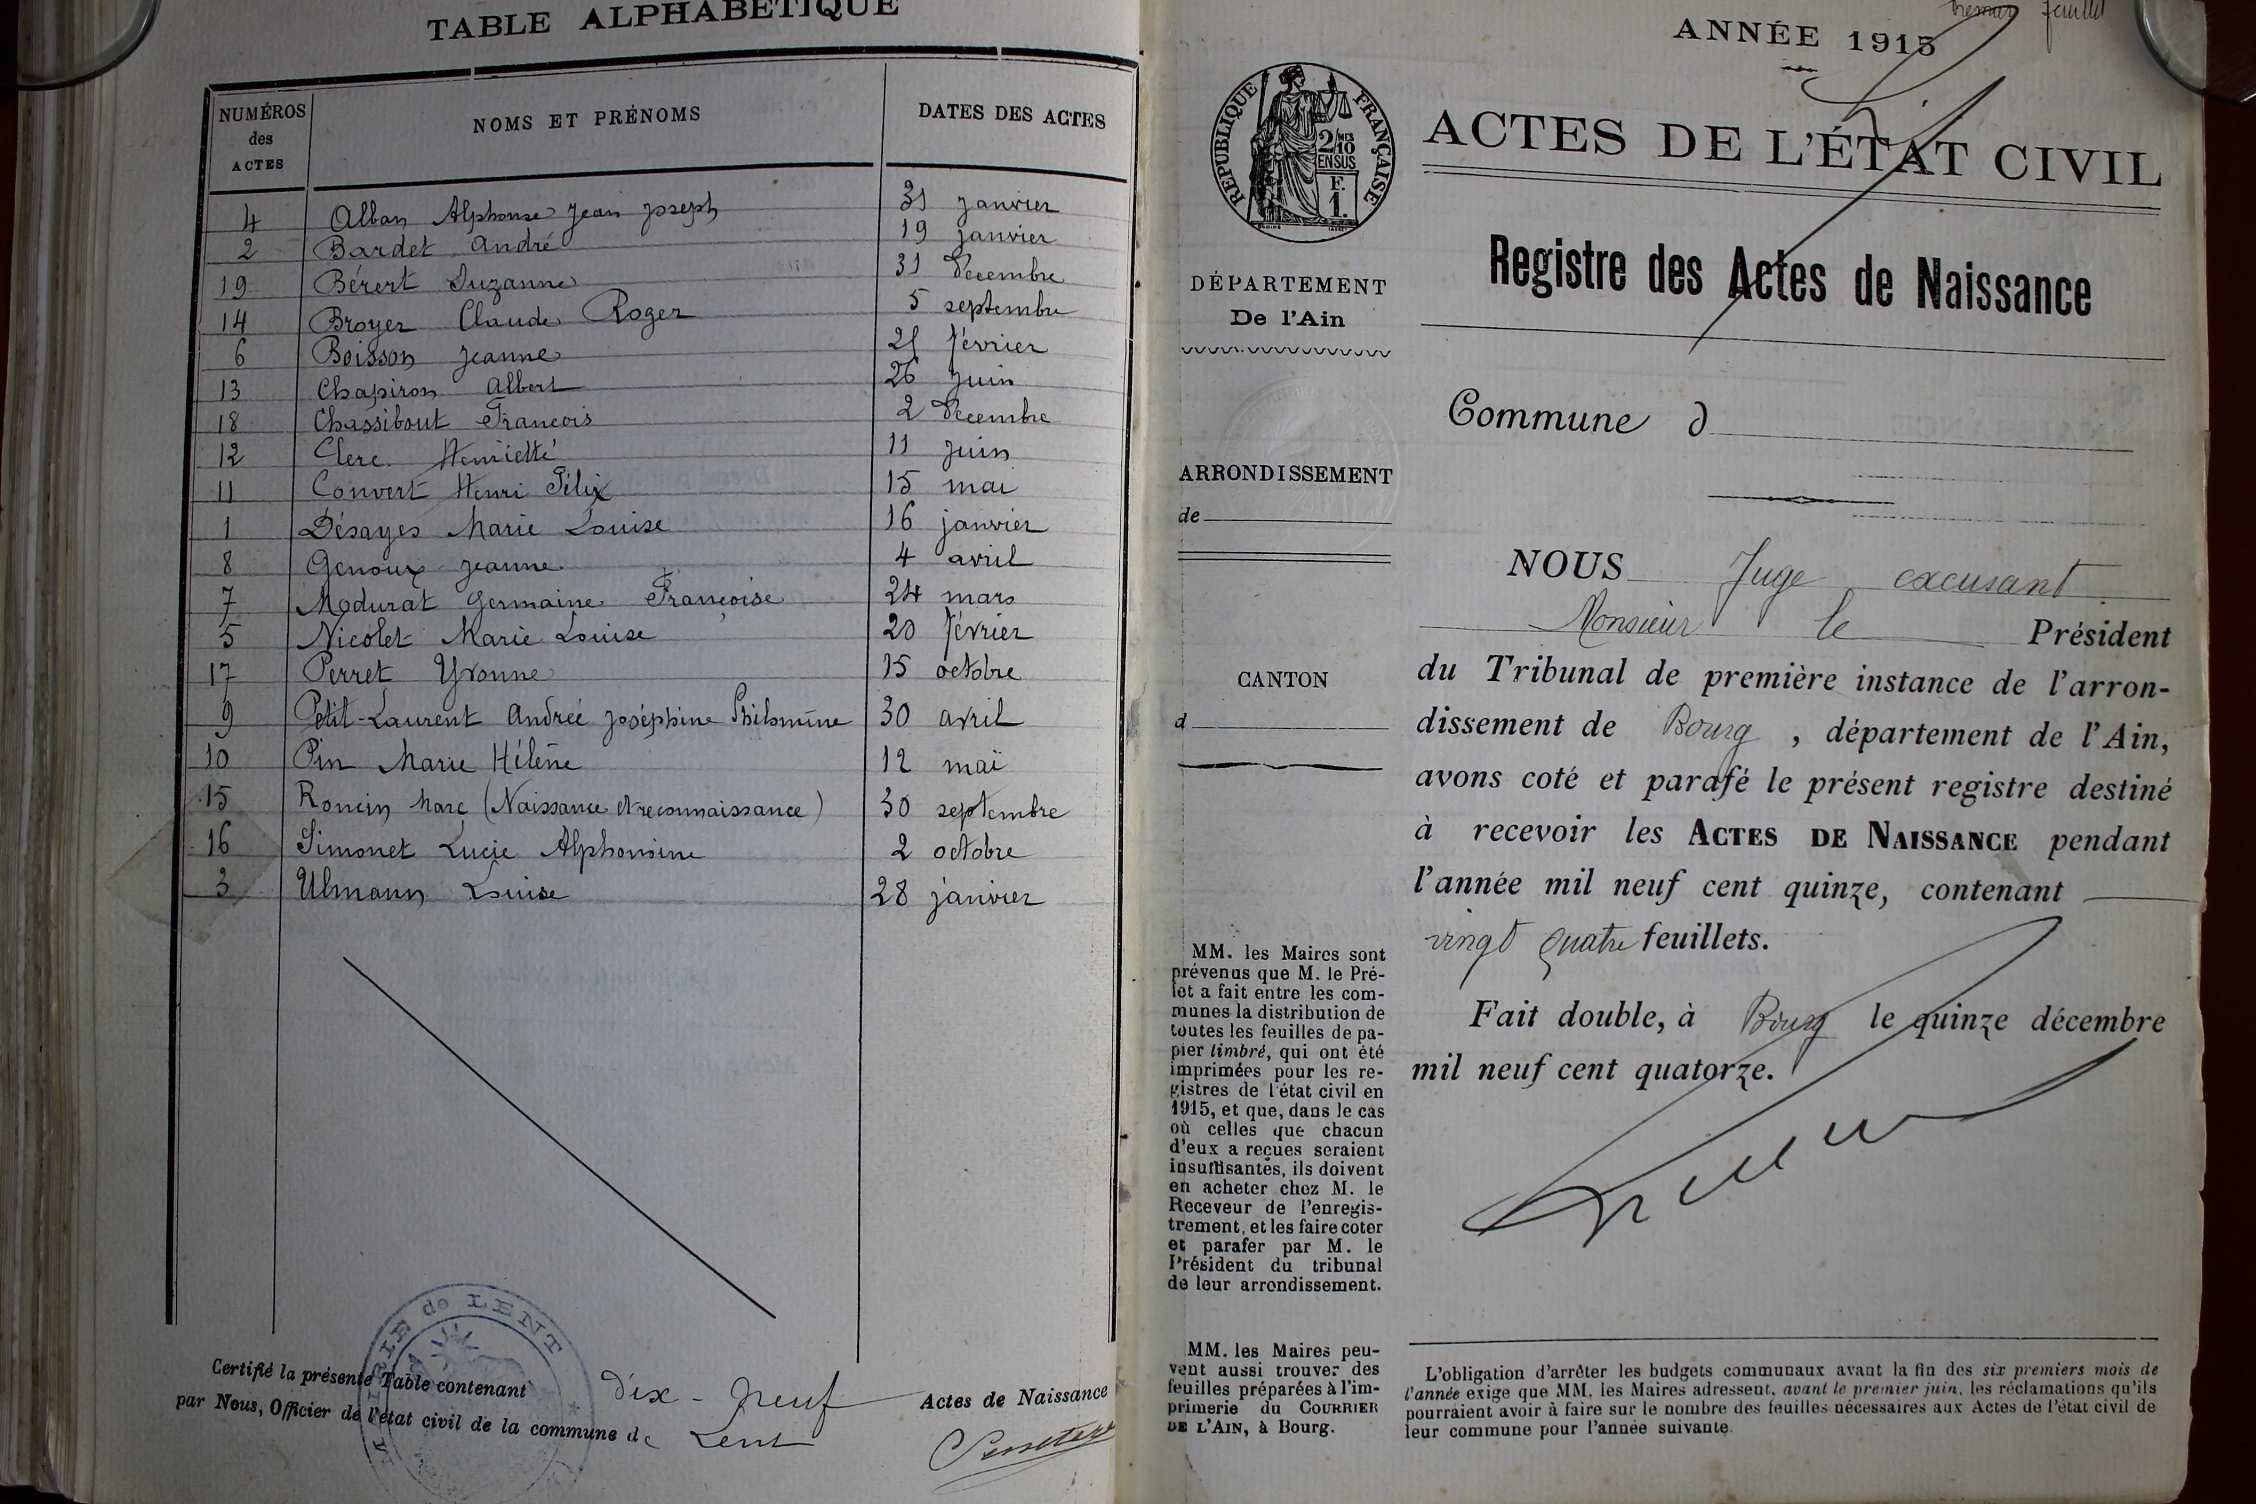 TABLE ALPHABÉTIQUE
NUMÉROS des ACTES NOMS ET PRÉNOMS DATES DES ACTES
4 Alban Alphonse Jean Joseph 31 janvier
2 Bardet André 19 janvier
19 Bérert Suzanne 31 Decembre
14 Broyer Claude Roger 5 septembre
6 Boisson Jeanne 21 février
13 Chapiron Albert 26 juin
18 Chassibout Francois 2 Decembre
12 Clerc Henriette 11 juin
11 Convert Henri Félix 15 mai
1 Désayes Marie Louise 16 janvier
8 Genoux Jeanne 4 avril
7 Modurat Germaine Françoise 24 mars
5 Nicolet Marie Louise 20 février
17 Perret Yvonne 15 octobre
9 Petit-Laurent Andrée Joséphine Philomine 30 avril
10 Pin Marie Hélène 12 mai
15 Roncin Marc (Naissance et reconnaissance) 30 septembre
16 Simonet Lucie Alphonsine 2 octobre
3 Ulmann Louise 28 janvier
MAIRIE de LENT
Certifié la présente Table contenant dix-neuf Actes de Naissance
par Nous, Officier de l'état civil de la commune de Lent
premier feuillet
ANNÉE 1915
RÉPUBLIQUE FRANÇAISE
2/10 MES
EN SUS
F.
1.
ACTES DE L'ÉTAT CIVIL
Registre des Actes de Naissance
DÉPARTEMENT
De l'Ain
Commune d
ARRONDISSEMENT
de
CANTON
d
NOUS Juge excusant
Monsieur le Président
du Tribunal de première instance de l'arron-
dissement de Bourg, département de l'Ain,
avons coté et parafé le présent registre destiné
à recevoir les ACTES DE NAISSANCE pendant
l'année mil neuf cent quinze, contenant
vingt quatre feuillets.
Fait double, à Bourg le quinze décembre
mil neuf cent quatorze.
MM. les Maires sont
prévenus que M. le Pré-
fet a fait entre les com-
munes la distribution de
toutes les feuilles de pa-
pier timbré, qui ont été
imprimées pour les re-
gistres de l'état civil en
1915, et que, dans le cas
où celles que chacun
d'eux a reçues seraient
insuffisantes, ils doivent
en acheter chez M. le
Receveur de l'enregis-
trement, et les faire coter
et parafer par M. le
Président du tribunal
de leur arrondissement.
MM. les Maires peu-
vent aussi trouver des
feuilles préparées à l'im-
primerie du COURRIER
DE L'AIN, à Bourg.
L'obligation d'arrêter les budgets communaux avant la fin des six premiers mois de
l'année exige que MM. les Maires adressent, avant le premier juin, les réclamations qu'ils
pourraient avoir à faire sur le nombre des feuilles nécessaires aux Actes de l'état civil de
leur commune pour l'année suivante.